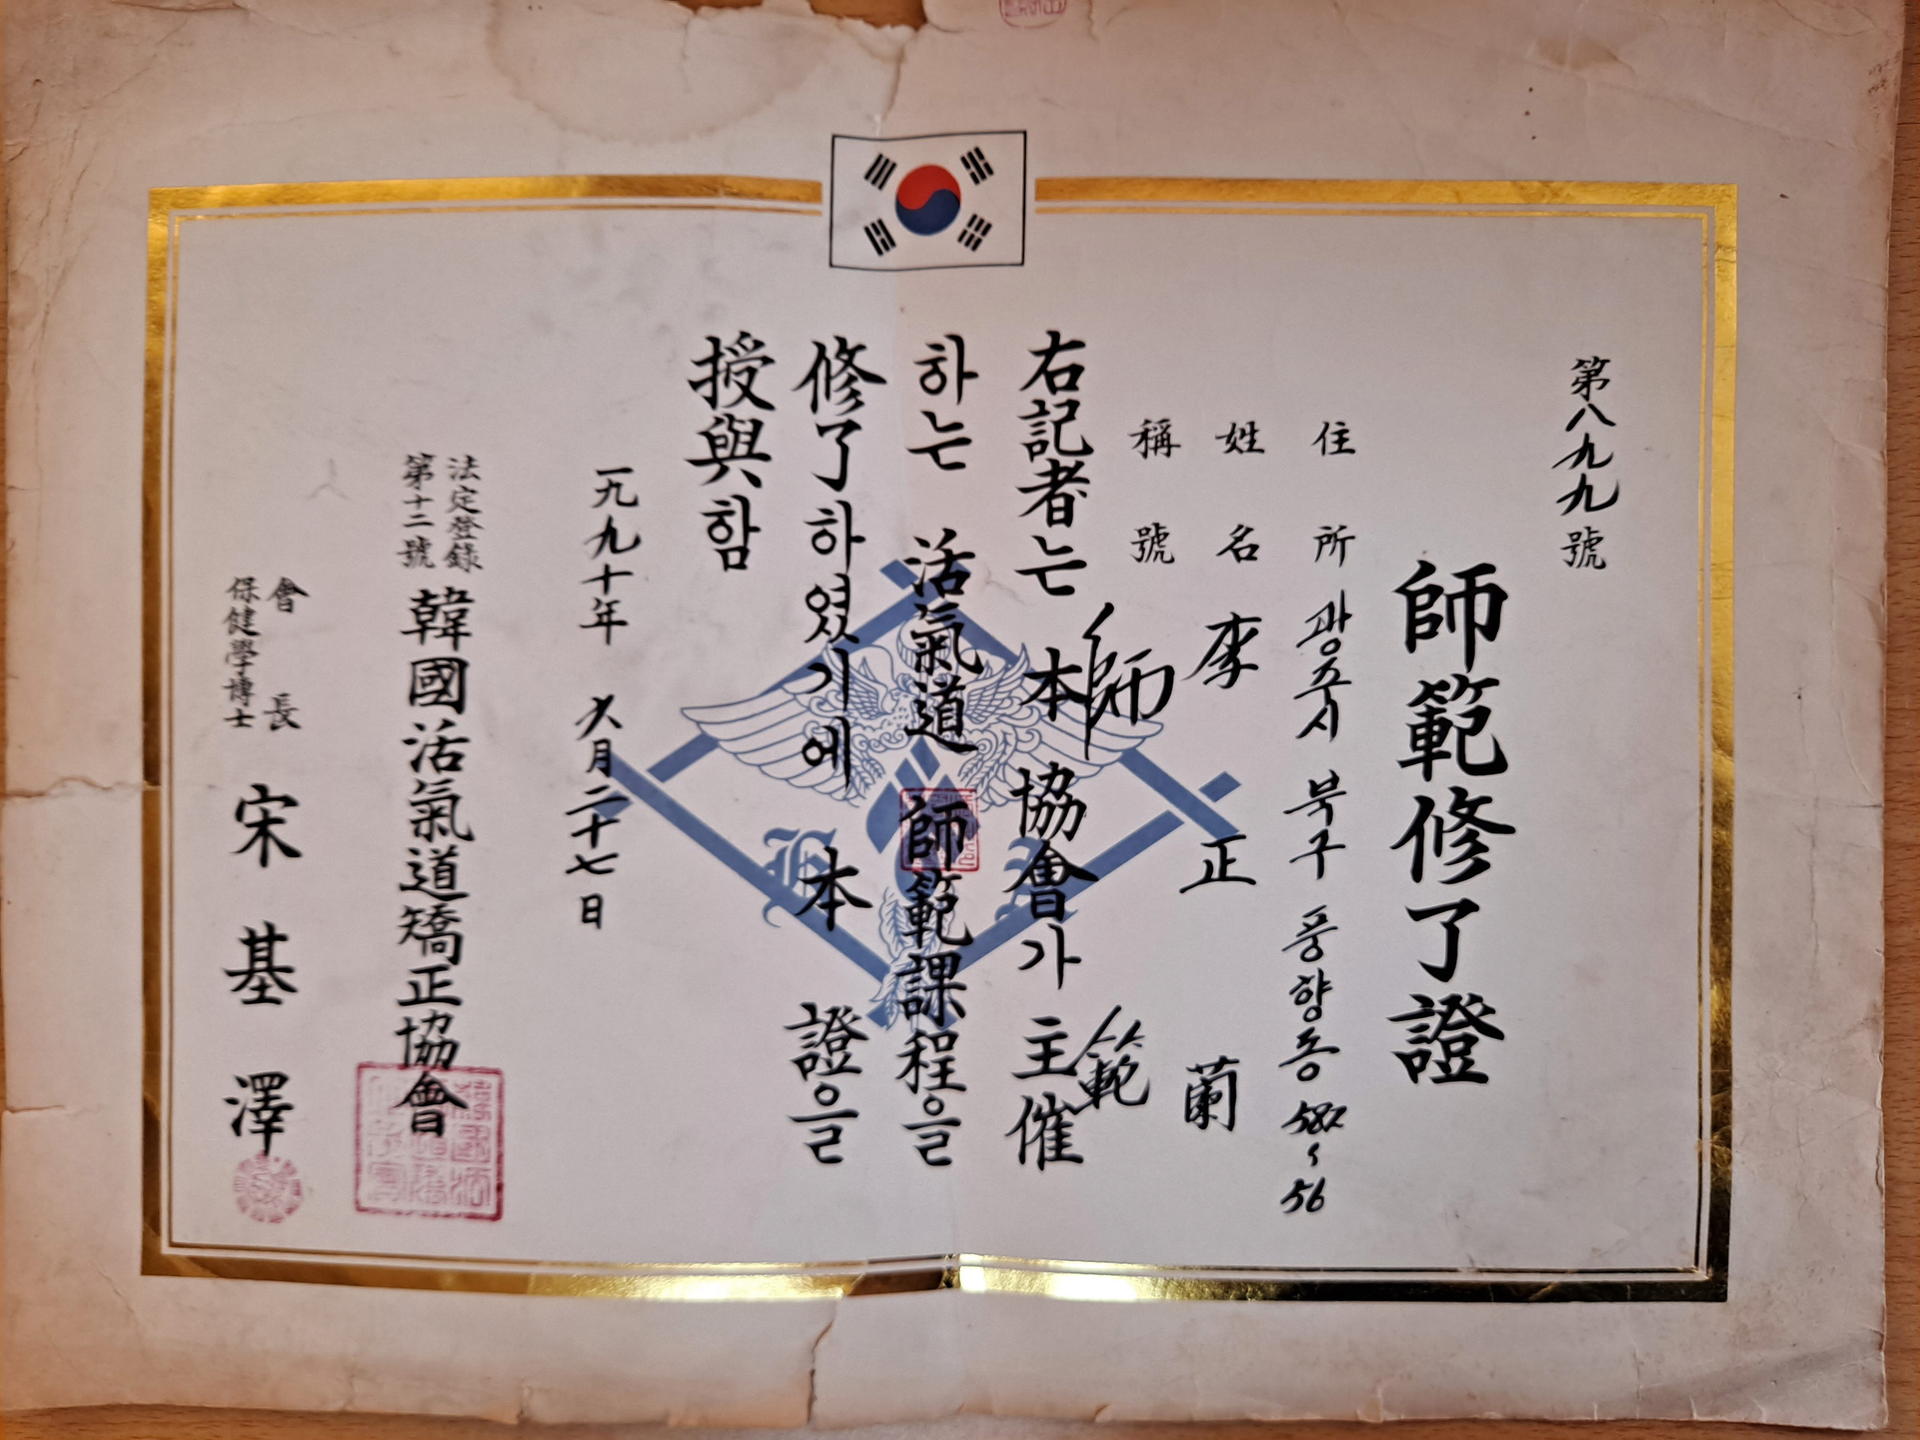 第八九九號
師範修了證
住所 광주시 북구 풍향동 582~56
姓名 李正蘭
稱號 師範
右記者는 本 協會가 主催
하는 活氣道 師範課程을
修了하였기에 本 證을
授與함
一九九十年 六月二十七日
法定登錄
第十二號
韓國活氣道矯正協會
會長
保健學博士
宋基澤